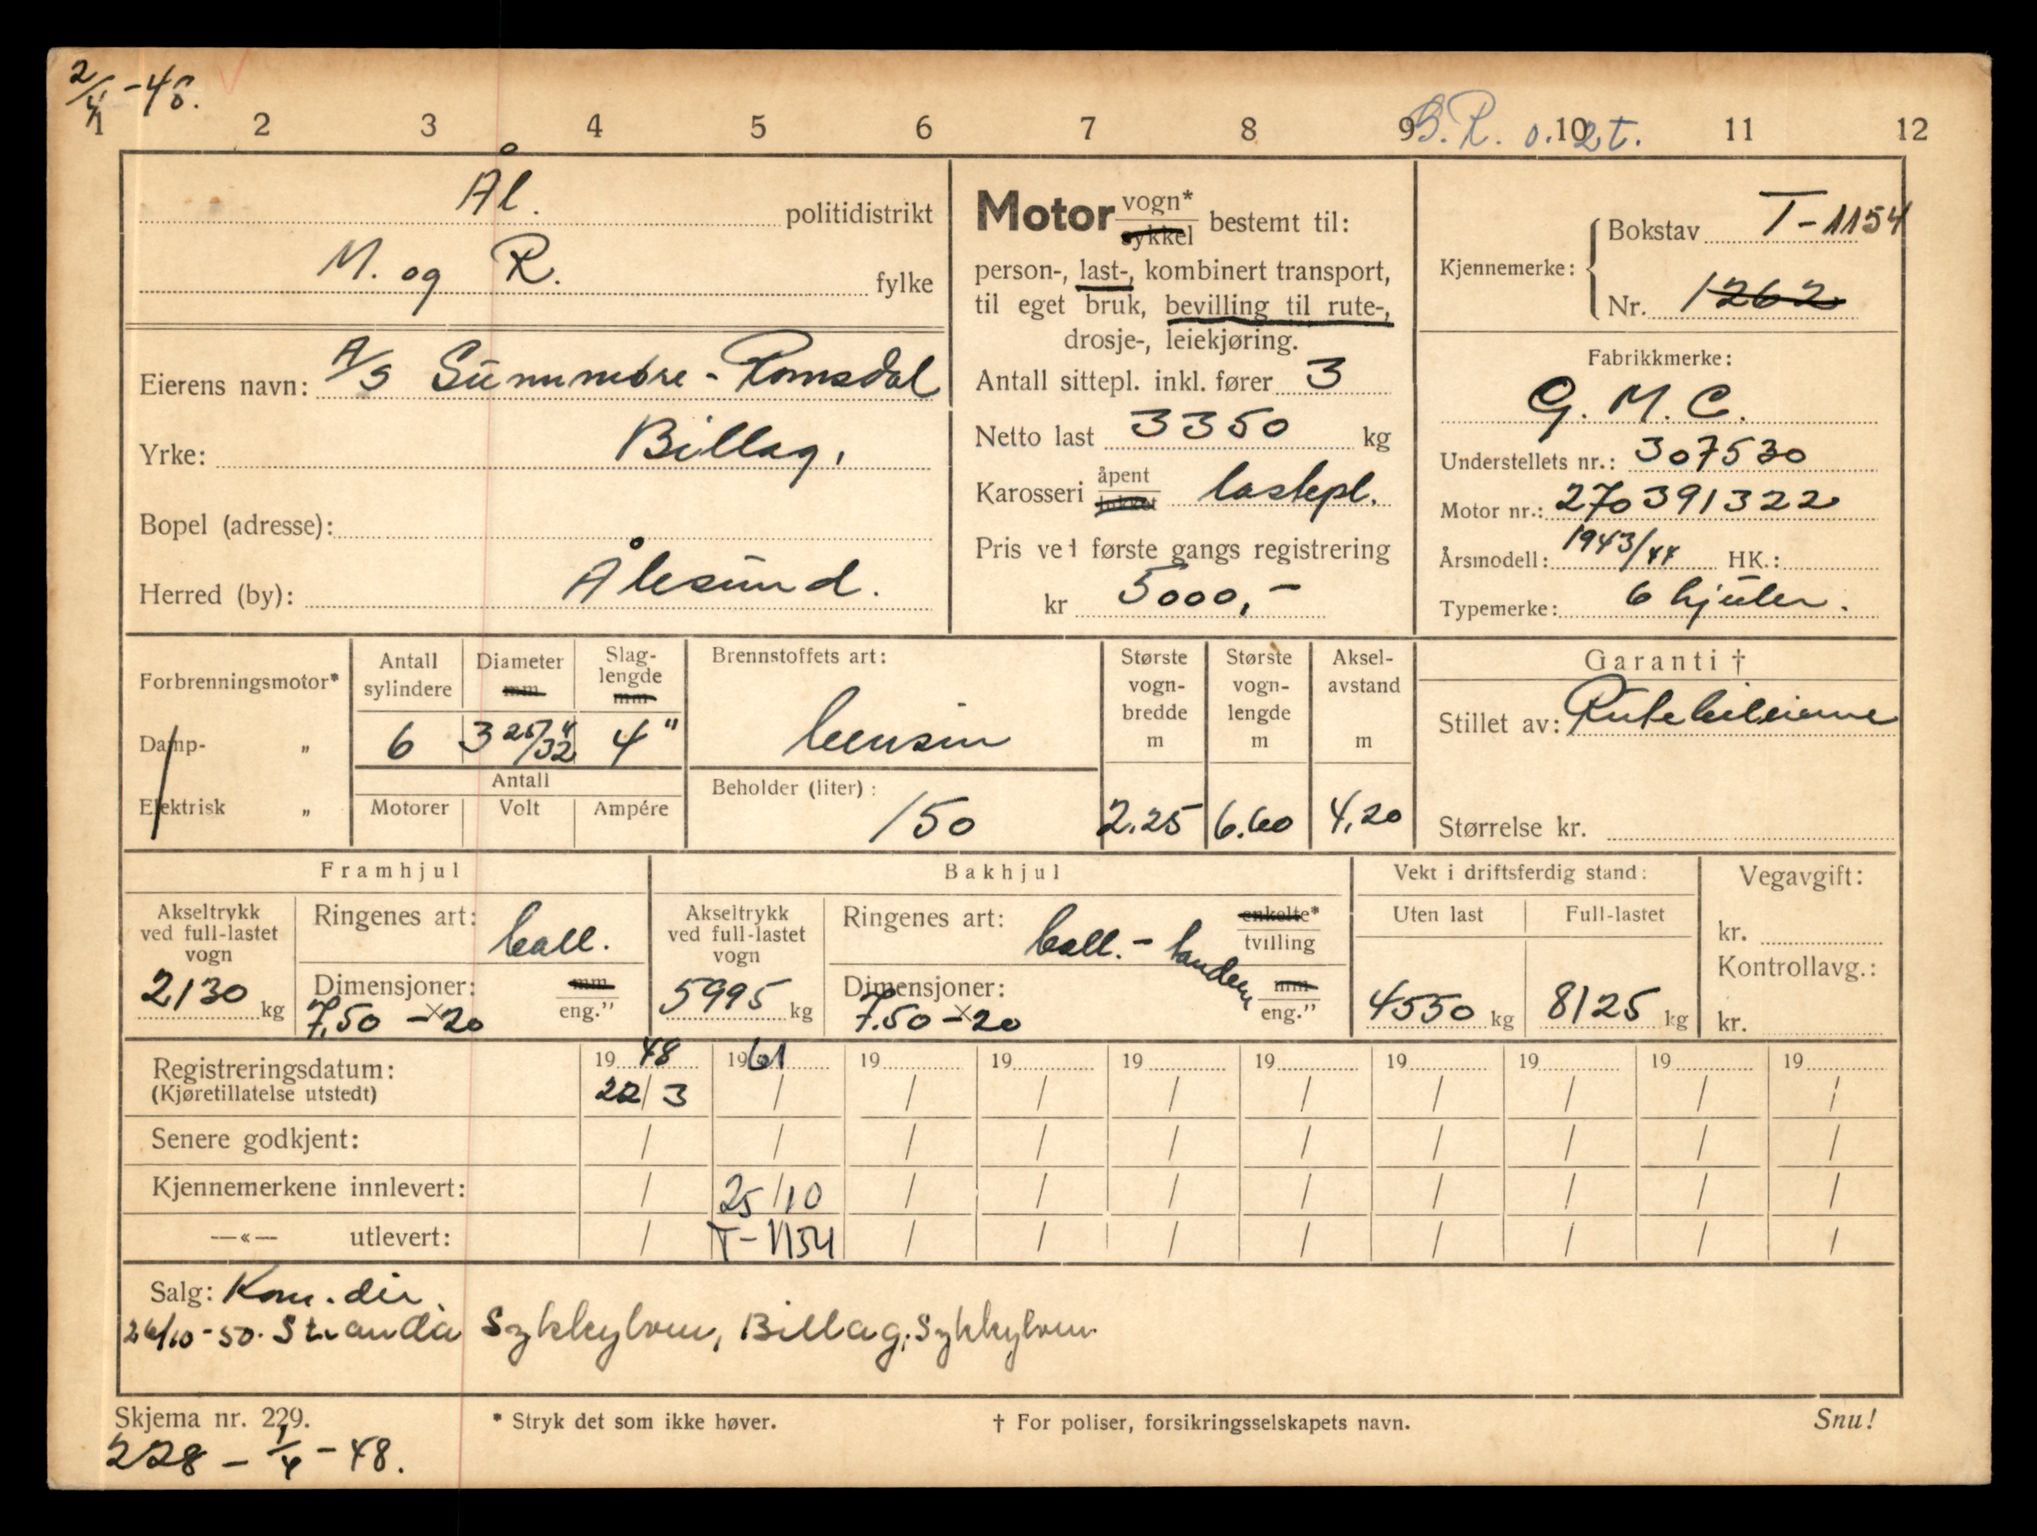 2/4 - 48.
1 2 3 4 5 6 7 8 9 10 11 12
Ål. politidistrikt
M. og R. fylke
Eierens navn: A/S Sunnmøre-Romsdal
Yrke: Billag,
Bopel (adresse):
Herred (by): Ålesund.
Motor vogn* sykkel bestemt til:
person-, last-, kombinert transport,
til eget bruk, bevilling til rute-,
drosje-, leiekjøring.
Antall sittepl. inkl. fører 3
Netto last 3350 kg
Karosseri åpent lukket lastepl.
Pris ved første gangs registrering
kr 5000,-
Kjennemerke: Bokstav T-1154
Nr. 1262
Fabrikkmerke:
G.M.C.
Understellets nr.: 307530
Motor nr.: 270391322
Årsmodell: 1943/44 HK.:
Typemerke: 6 hjuler.
Forbrenningsmotor*
Damp- „
Elektrisk „
Antall sylindere 6
Diameter mm 3 25/32"
Slaglengde mm 4"
Antall
Motorer Volt Ampére
Brennstoffets art: bensin
Beholder (liter): 150
Største vognbredde m 2.25
Største vognlengde m 6.60
Akselavstand m 4,20
Garanti †
Stillet av: Rutebileierne
Størrelse kr.
Framhjul
Akseltrykk ved full-lastet vogn 2130 kg
Ringenes art: ball.
Dimensjoner: mm eng." 7,50 -x 20
Bakhjul
Akseltrykk ved full-lastet vogn 5995 kg
Ringenes art: ball. - tandem enkelte* tvilling
Dimensjoner: mm eng." 7.50 -x 20
Vekt i driftsferdig stand:
Uten last 4550 kg
Full-lastet 8125 kg
Vegavgift:
kr.
Kontrollavg.:
kr.
Registreringsdatum: 19 48 19 61 19 19 19 19 19 19 19 19
(Kjøretillatelse utstedt) 22/3 / / / / / / / / /
Senere godkjent: / / / / / / / / / /
Kjennemerkene innlevert: / 25/10 / / / / / / / /
—«— utlevert: / T-1154 / / / / / / / /
Salg: Kom. dir.
26/10-50. Stranda Sykkylven, Billag, Sykkylven
Skjema nr. 229. * Stryk det som ikke høver. † For poliser, forsikringsselskapets navn. Snu!
228 - 1/4 - 48.